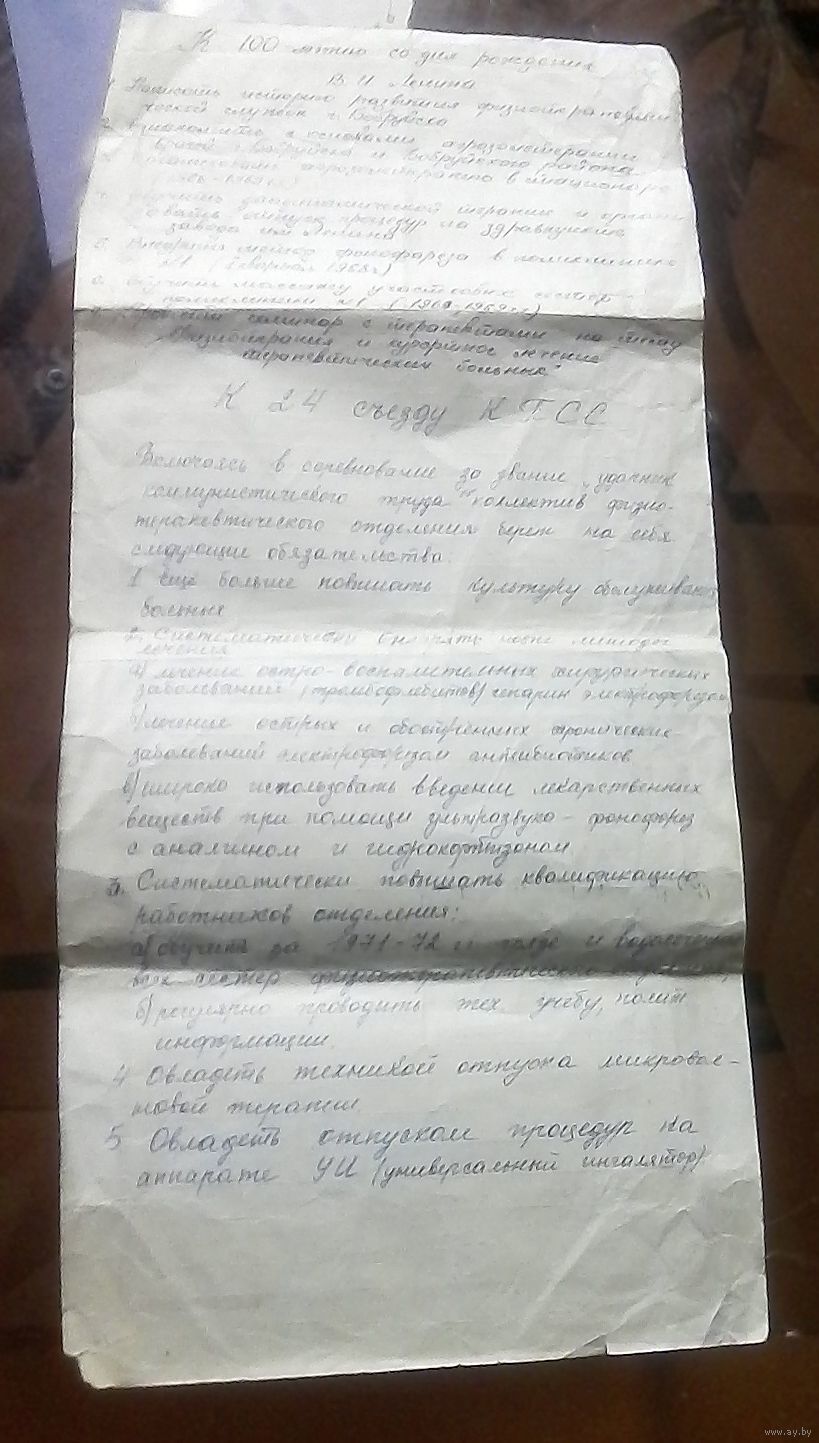 К 100 летию со дня рождения
В И Ленина
1. Написать историю развития физиотерапевти
ческой службы г. Бобруйска
2. с основами аэрозольтерапии
врачей г. Бобруйска и Бобруйского района
3. аэрозольтерапию в стационаре
4. Обучить диадинамической терапии и органи
зовать отпуск процедур на здравпункте
завода им Ленина
5. Внедрить метод фонофореза в поликлинике
№1 ( 1968г)
6. Обучить массажу участковых сестер
поликлиники №1 (1968-1969гг)
7. Провести семинар с терапевтами на тему
"Физиотерапия и курортное лечение
терапевтических больных"
К 24 съезду КПСС
Включаясь в соревнование за звание „ударник
коммунистического труда" коллектив физио-
терапевтического отделения берет на себя
следующие обязательства:
1 Ещё больше повышать культуру обслуживания
больных
2. Систематически внедрять новые методы
лечения
а) лечение остро-воспалительных хирургических
заболеваний (тромбофлебитов) гепарин электрофорезом
б) лечение острых и обострённых хронических
заболеваний электрофорезом антибиотиков
в) широко использовать введении лекарственных
веществ при помощи ультразвука - фонофорез
с аналгином и гидрокортизоном
3. Систематически повышать квалификацию
работников отделения:
а) обучить за 1971-72 гг и водолечению
всех сестер физиотерапевтического отделения,
б) регулярно проводить тех. учебу, полит
информации.
4 Овладеть техникой отпуска микровол-
новой терапии.
5 Овладеть отпуском процедур на
аппарате УИ (универсальный ингалятор)
www.ay.by